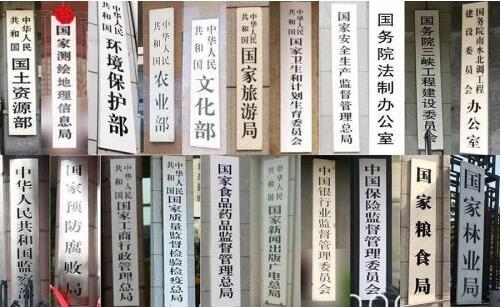 中华人民共和国
国土资源部
国家测绘地理信息局
中华人民共和国
环境保护部
中华人民共和国
农业部
中华人民共和国
文化部
中华人民共和国
国家旅游局
中华人民共和国
国家卫生和计划生育委员会
国家安全生产监督管理总局
国务院法制办公室
国务院三峡工程建设委员会
国务院南水北调工程
建设委员会办公室
中华人民共和国监察部
国家预防腐败局
中华人民共和国
国家工商行政管理总局
中华人民共和国
国家质量监督检验检疫总局
国家食品药品监督管理总局
中华人民共和国
国家新闻出版广电总局
中国银行业监督管理委员会
中国保险监督管理委员会
国家粮食局
国家林业局